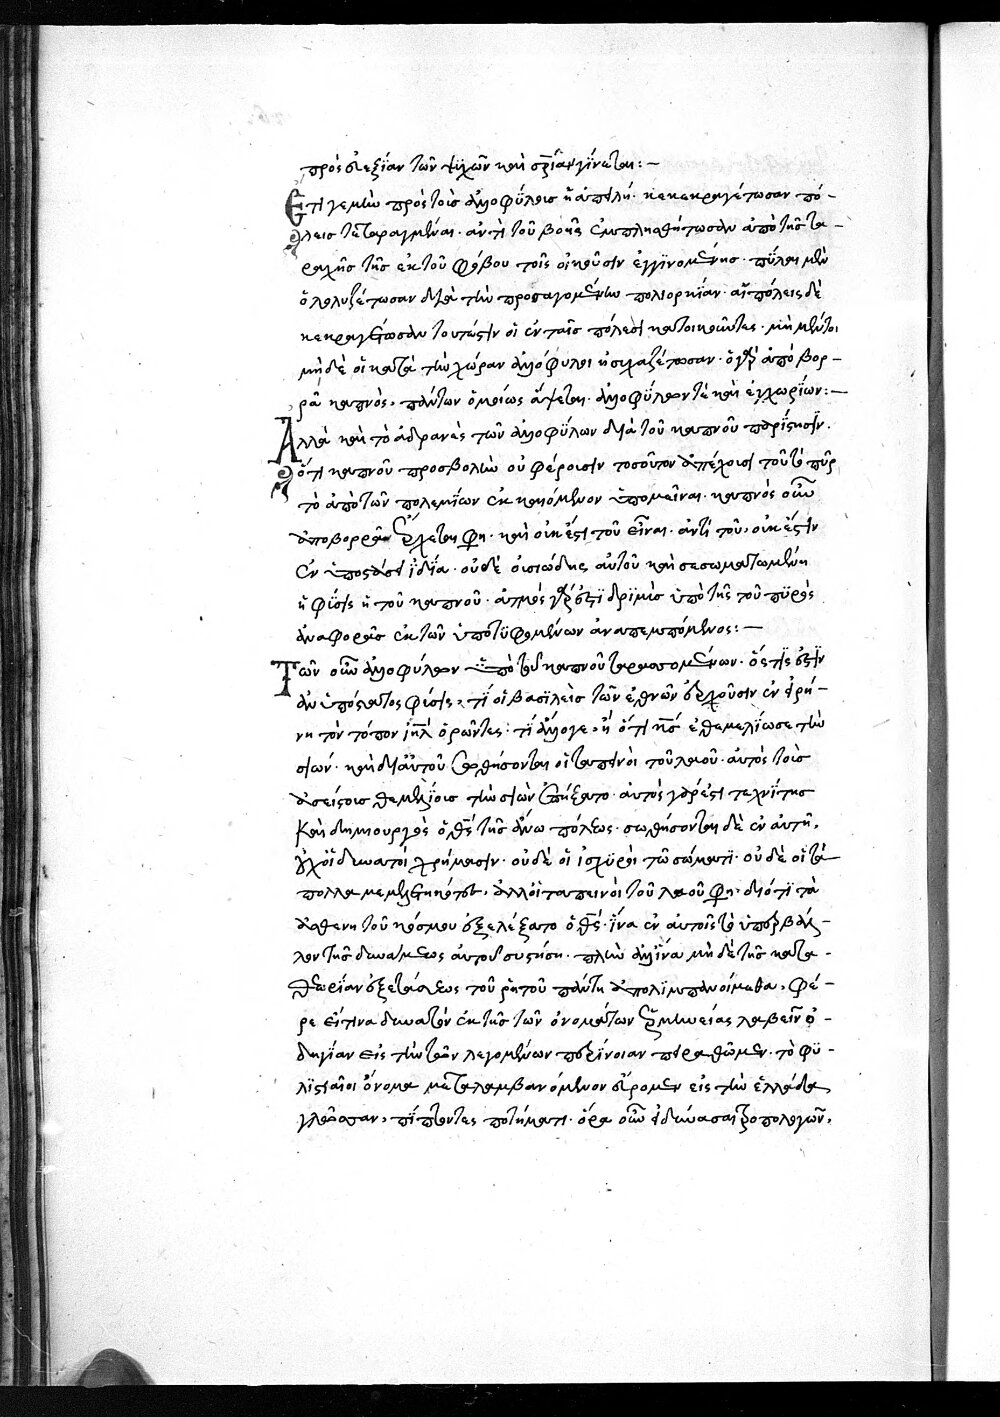 πρὸς εὐεξίαν τῶν ψυχῶν καὶ σωτηρίαν γίνεται: —
Ἔτι γεμὴν πρὸς τοῖς ἀλλοφύλοις ἡ ἀπειλή· κεκραγέτωσαν πό-
λεις τεταραγμέναι· ἀντὶ τοῦ βοῆς ἐμπλησθήτωσαν ἀπὸ τῆς τα-
ραχῆς τῆς ἐκ τοῦ φόβου τοῖς οἰκοῦσιν ἐγγινομένης· πύλαι μὲν
ὀλολυζέτωσαν διὰ τὴν προσαγομένην πολιορκίαν· αἱ πόλεις δὲ
κεκραγέτωσαν τουτέστιν οἱ ἐν ταῖς πόλεσι κατοικοῦντες· μὴ μέντοι
μὴ δὲ οἱ κατὰ τὴν χώραν ἀλλόφυλοι ἡσυχαζέτωσαν· ὁ γὰρ ἀπὸ βορ-
ρᾶ καπνὸς, πάντων ὁμοίως ἅψεται· ἀλλοφύλων τὲ καὶ ἐγχωρίων: —
Ἀλλὰ καὶ τὸ ἀδρανὲς τῶν ἀλλοφύλων διὰ τοῦ καπνοῦ παρίστησιν·
ὅτι καπνοῦ προσβολὴν οὐ φέροισιν τοσοῦτον ἀπέχοισι τοῦ τὸ πῦρ
τὸ ἀπὸ τῶν πολεμίων ἐκκαιόμενον ὑπομεῖναι· καπνὸς οὖν
ἀπὸ βορρᾶ ἔρχεται φη· καὶ οὐκ ἔστι τοῦ εἶναι· ἀντὶ τοῦ, οὐκ ἔστιν
ἐν ὑποστάσει ἰδία· οὐδὲ οὐσιώδης αὐτοῦ καὶ σεσωματωμένη
ἡ φύσις ἡ τοῦ καπνοῦ· ἀτμὸς γάρ ἐστι δριμὺς ὑπὸ τῆς τοῦ πυρὸς
ἀναφορᾶς ἐκ τῶν ὑποτυφομένων ἀναπεμπόμενος: —
Τῶν οὖν ἀλλοφύλων ὑπὸ τοῦ καπνοῦ ταρασσομένων· ὅς τίς ἐστιν
ἀνυπόστατος φύσις, τί οἱ βασιλεῖς τῶν ἐθνῶν ἐροῦσιν ἐν εἰρή-
νη τὸν τόπον ἱλημ ὁρῶντες· τί ἄλλο γε, ἢ ὅτι κς ἐθεμελίωσε τὴν
σιών· καὶ δι αὐτοῦ σωθήσονται οἱ ταπεινοὶ τοῦ λαοῦ· αὐτὸς τοῖς
ἀσείστοις θεμελίοις τὴν σιὼν ἐπήξατο· αὐτὸς γάρ ἐστι τεχνίτης
καὶ δημιουργὸς ὁ θς τῆς ἄνω πόλεως· σωθήσονται δὲ ἐν αὐτῆ,
οὐχ οἱ δυνατοὶ χρήμασιν· οὐδὲ οἱ ἰσχυροὶ τῶ σώματι· οὐδὲ οἱ τὰ
πολλὰ μεμελετηκότες, ἀλλ οἱ ταπεινοὶ τοῦ λαοῦ φη· διότι τὰ
ἀσθενῆ τοῦ κόσμου ἐξελέξατο ὁ θς· ἵνα ἐν αὐτοῖς τὸ ὑπερβάλ-
λον τῆς δυνάμεως αὐτοῦ συστήση· πλὴν ἀλλ ἵνα μὴ δὲ τῆς κατα-
θεωρίαν ἐξετάσεως τοῦ ῥητοῦ πάντη ἀπολιμπανοίμεθα, φέ-
ρε εἴ τινα δυνατὸν ἐκ τῆς τῶν ὀνομάτων ἑρμηνείας λαβεῖν ὁ-
δηγίαν εἰς τὴν τῶν λεγομένων περίνοιαν πειραθῶμεν· τὸ φυ-
λιστιαῖοι ὄνομα μεταλαμβανόμενον εὕρομεν εἰς τὴν ἑλλάδα
γλῶσσαν, πίπτοντες ποτήματι· ὅρα οὖν εἰ δύνασαι ἀπὸ λογῶν,